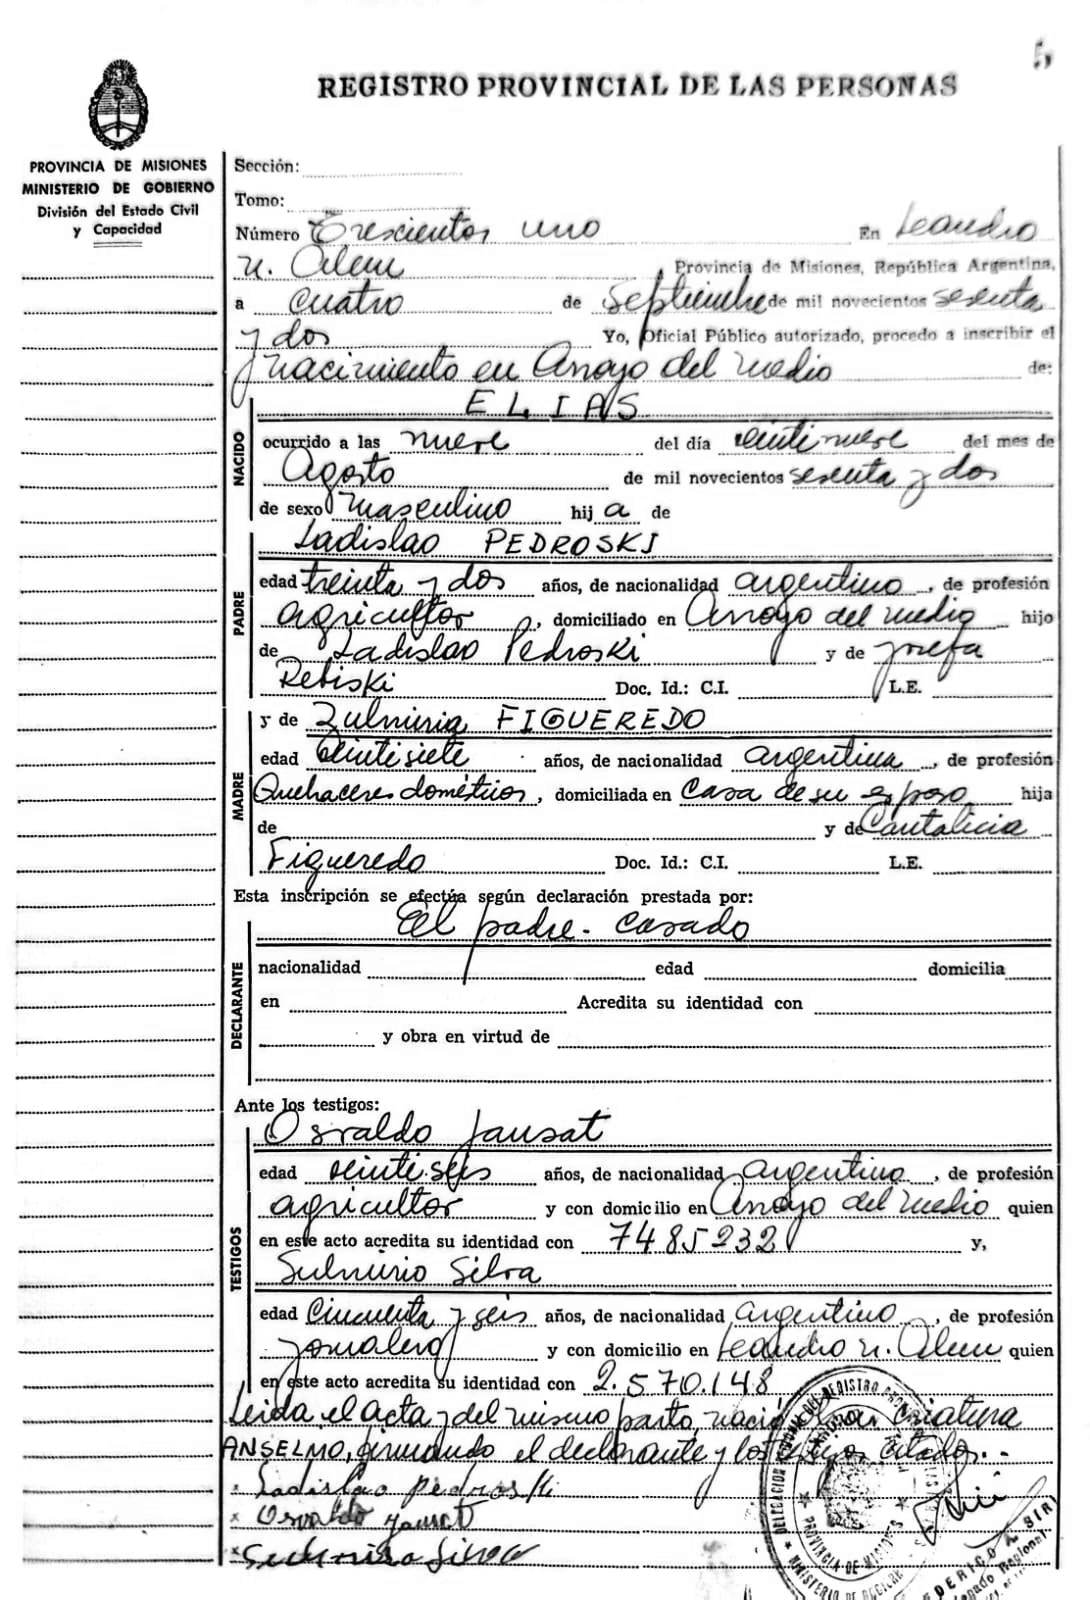 REGISTRO PROVINCIAL DE LAS PERSONAS
PROVINCIA DE MISIONES
MINISTERIO DE GOBIERNO
División del Estado Civil
y Capacidad
Sección:
Tomo:
Número Trescientos uno En Leandro
N. Alem, Provincia de Misiones, República Argentina,
a cuatro de Septiembre de mil novecientos sesenta
y dos Yo, Oficial Público autorizado, procedo a inscribir el
Nacimiento en Arroyo del Medio de:
ELIAS
NACIDO
ocurrido a las nueve del día veintinueve del mes de
Agosto de mil novecientos sesenta y dos
de sexo masculino hij a de
Ladislao PEDROSKI
PADRE
edad treinta y dos años, de nacionalidad argentino, de profesión
agricultor, domiciliado en Arroyo del Medio hijo
de Ladislao Pedroski y de Josefa
Doc. Id.: C.I. L.E.
y de Zulmiria FIGUEREDO
MADRE
edad veintisiete años, de nacionalidad argentina, de profesión
Quehaceres domésticos, domiciliada en Casa de su esposo hija
de y de Cantalicia
Figueredo Doc. Id.: C.I. L.E.
Esta inscripción se efectúa según declaración prestada por:
El padre- casado
DECLARANTE
nacionalidad edad domicilia
en Acredita su identidad con
y obra en virtud de
Ante los testigos:
Osvaldo Jansat
TESTIGOS
edad veintiseis años, de nacionalidad argentino, de profesión
agricultor y con domicilio en Arroyo del Medio quien
en este acto acredita su identidad con 7485232 y,
Sulmirio Silva
edad Cincuenta y seis años, de nacionalidad argentino, de profesión
jornalero y con domicilio en Leandro N. Alem quien
en este acto acredita su identidad con 2.570.148
Leida el acta y del mismo parto, nació criatura
ANSELMO, firmando el declarante y los citados.-
x Ladislao Pedroski
x Osvaldo Jansat
x Silva
PROVINCIA DE MISIONES